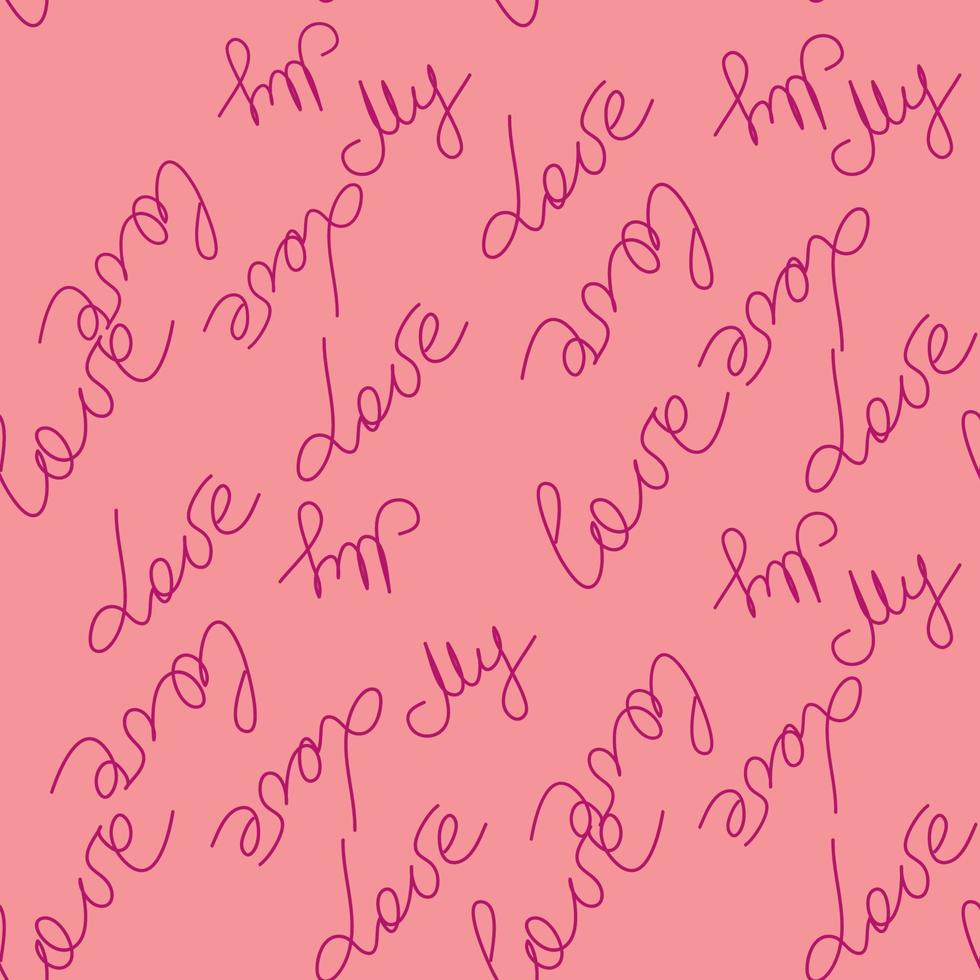 My
My
Love
My
My
love
Love
love
Love
love
Love
love
Love
Love
My
My
My
love
Love
My
love
Love
love
Love
love
Love